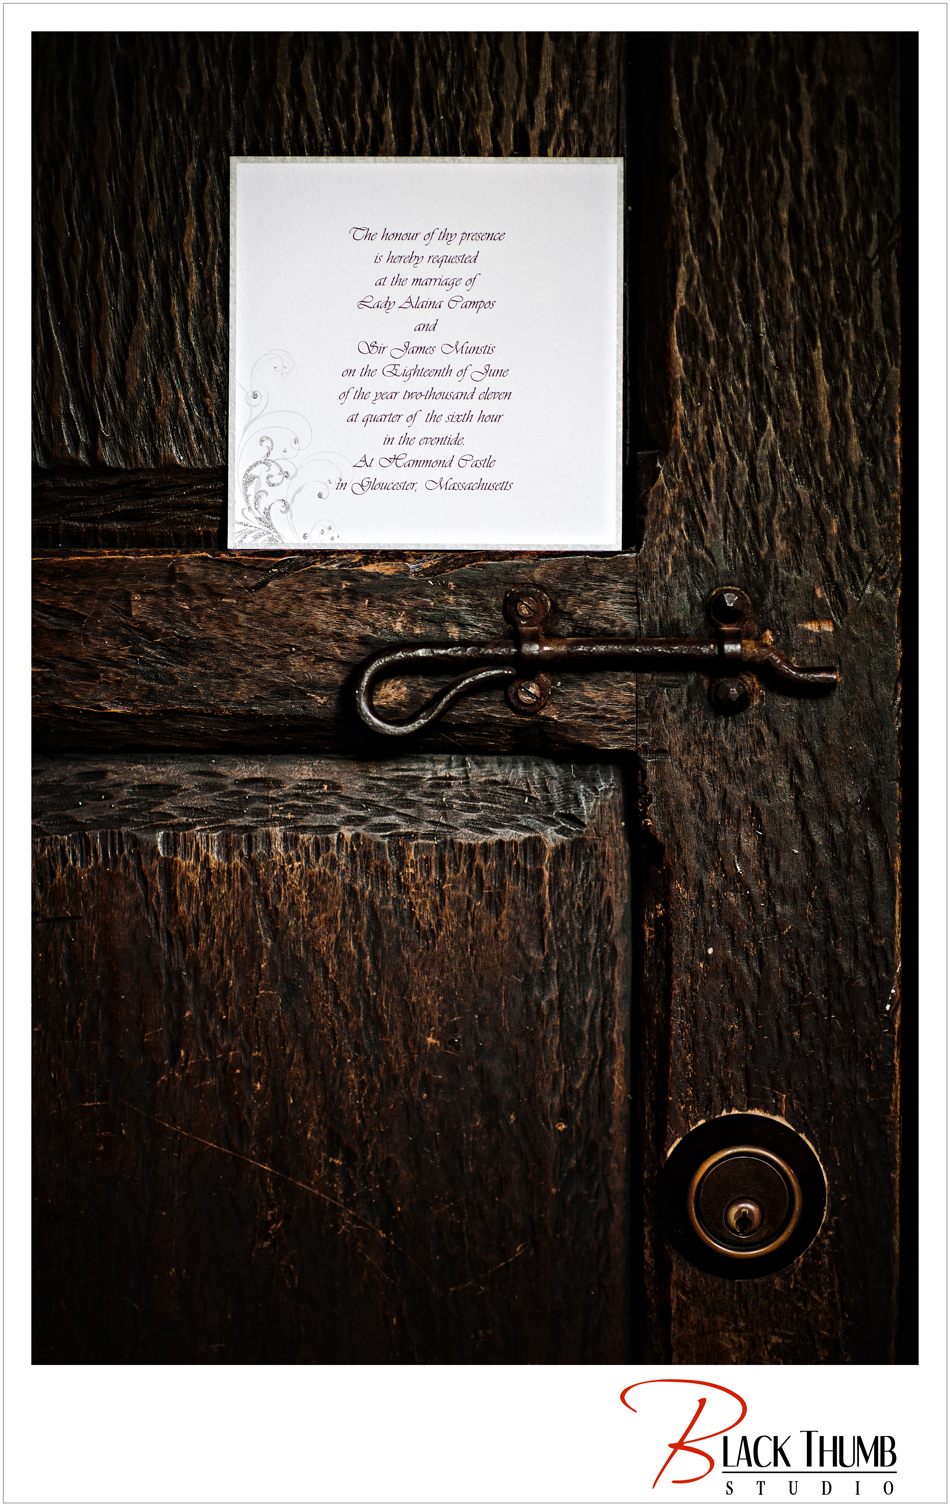 The honour of thy presence
is hereby requested
at the marriage of
Lady Alaina Campos
and
Sir James Munstis
on the Eighteenth of June
of the year two-thousand eleven
at quarter of the sixth hour
in the eventide.
At Hammond Castle
in Gloucester, Massachusetts
BLACK THUMB
STUDIO